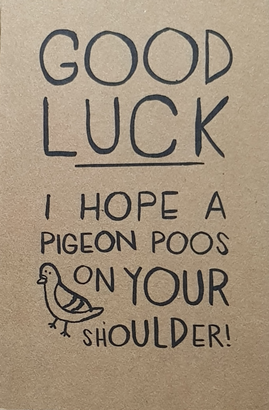 GOOD
LUCK
I HOPE A
PIGEON POOS
ON YOUR
SHOULDER!